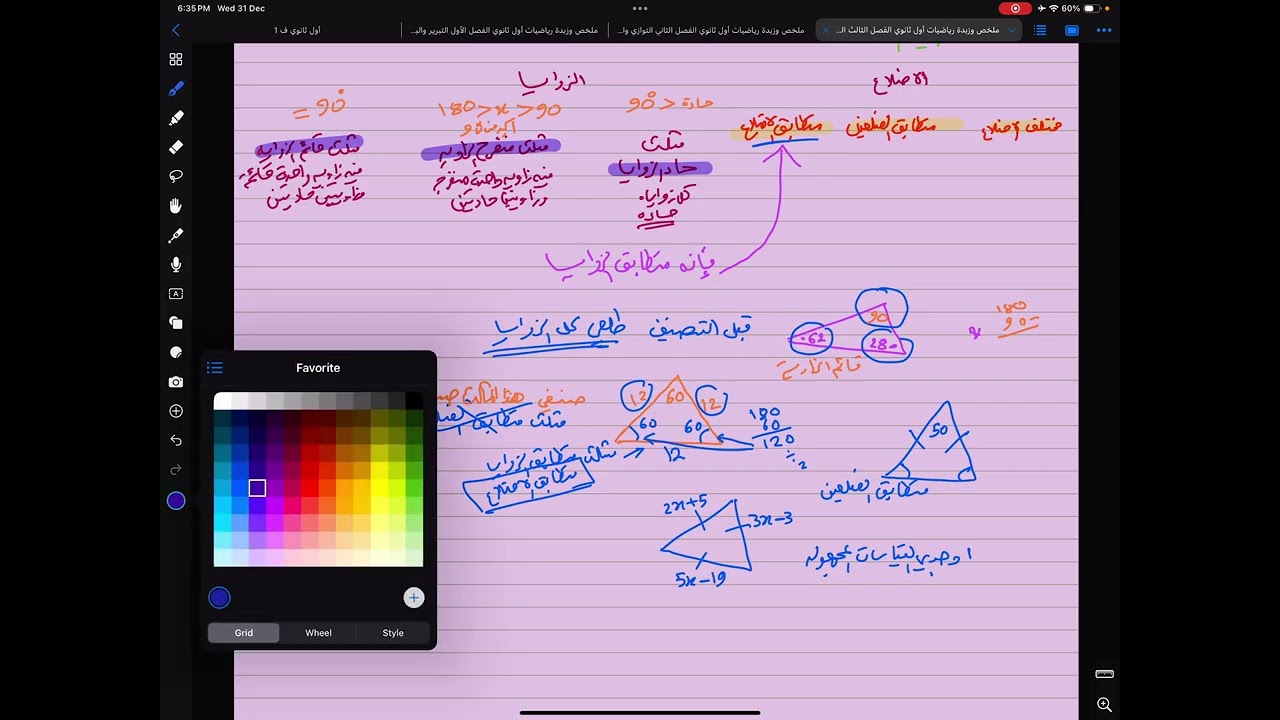 6:35 PM Wed 31 Dec
60%
أول ثانوي ف 1
ملخص وزبدة رياضيات أول ثانوي الفصل الأول التبرير والب...
ملخص وزبدة رياضيات أول ثانوي الفصل الثاني التوازي وا...
ملخص وزبدة رياضيات أول ثانوي الفصل الثالث ال...
الاضلاع
الزوايا
مختلف الاضلاع
متطابق الضلعين
متطابق الاضلاع
حادة < 90°
180 > x > 90
أكبر من 90
= 90°
مثلث
حاد الزوايا
كل زواياه
حاده
مثلث منفرج الزاويه
فيه زاويه واحدة منفرجه
وزاويتين حادتين
مثلث قائم الزاويه
فيه زاويه واحدة قائمة
وزاويتين حادتين
فإنه متطابق الزوايا
قبل التصنيف طلعي كل الزوايا
90
62
28
قائم الزاوية
180
90 -
صنفي هذا المثلث
مثلث متطابق الضلعين
12
60
12
60
60
12
180
60
120
÷ 2
مثلث متطابق الزوايا
متطابق الاضلاع
50
متطابق الضلعين
2x+5
3x-3
5x-19
اوجدي القياسات المجهوله
Favorite
Grid
Wheel
Style